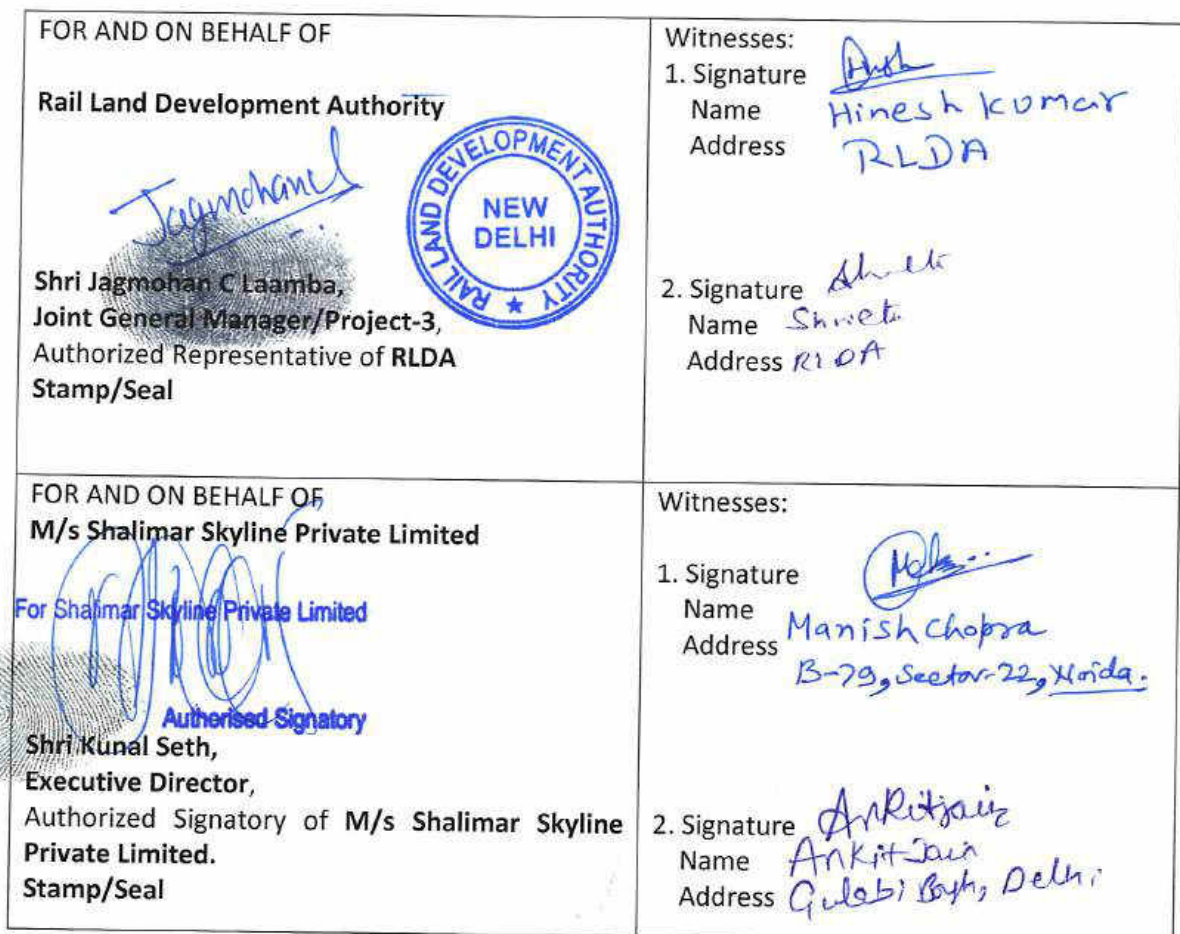 FOR AND ON BEHALF OF
Rail Land Development Authority
Jagmohan
RAIL LAND DEVELOPMENT AUTHORITY
NEW
DELHI
Shri Jagmohan C Laamba,
Joint General Manager/Project-3,
Authorized Representative of RLDA
Stamp/Seal
Witnesses:
1. Signature
Name Hinesh Kumar
Address RLDA
2. Signature
Name
Address RLDA
FOR AND ON BEHALF OF
M/s Shalimar Skyline Private Limited
For Shalimar Skyline Private Limited
Authorised Signatory
Shri Kunal Seth,
Executive Director,
Authorized Signatory of M/s Shalimar Skyline
Private Limited.
Stamp/Seal
Witnesses:
1. Signature
Name
Address Manish Chopra
B-79, Sector-22, Noida.
2. Signature Ankitjain
Name Ankit Jain
Address Gulabi Bagh, Delhi